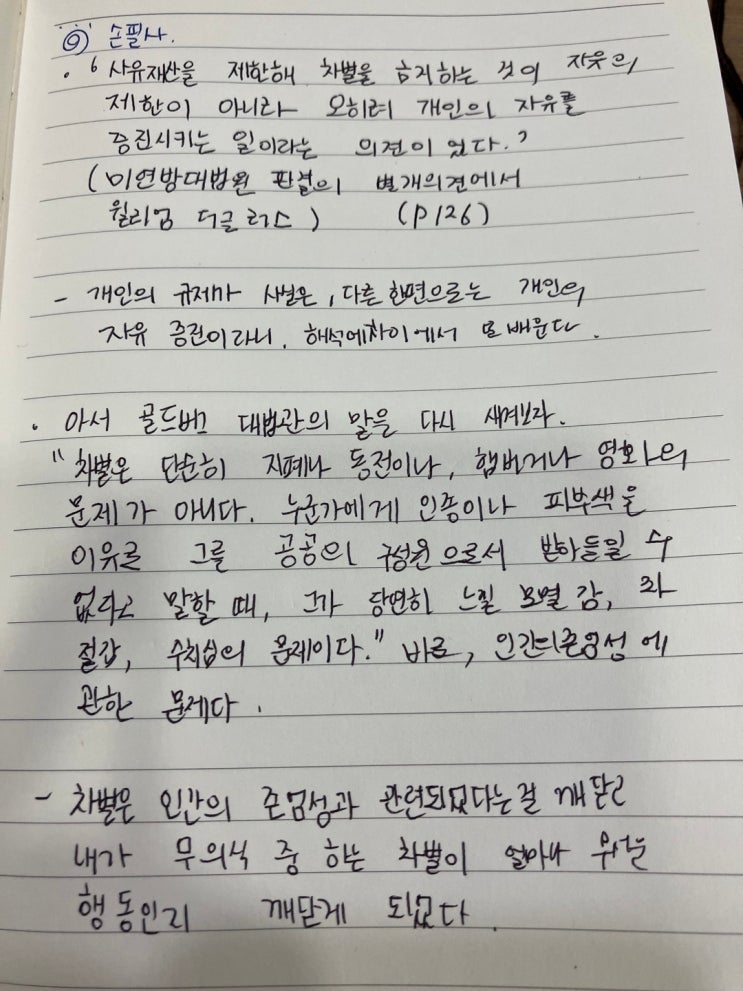 ⑨ 손필사.
· ‘사유재산을 제한해 차별을 금지하는 것이 자유의
제한이 아니라 오히려 개인의 자유를
증진시키는 일이라는 의견이 었다.’
(미연방대법원 판결의 별개의견에서
윌리엄 더글러스) (P126)
- 개인의 규제가 사실은, 다른한면으로는 개인의
자유 증진이라니. 해석에차이에서 또배운다.
· 아서 골드버그 대법관의 말을 다시 새겨보자.
"차별은 단순히 지폐나 동전이나, 햄버거나 영화의
문제가 아니다. 누군가에게 인종이나 피부색을
이유로 그를 공공의 구성원으로서 받아들일 수
없다고 말할 때, 그가 당연히 느낄 모멸감, 좌
절감, 수치심의 문제이다." 바로, 인간의존엄성에
관한 문제다.
- 차별은 인간의 존엄성과 관련되었다는걸 깨닫고
내가 무의식 중 하는 차별이 얼마나
행동인지 깨닫게 되었다.